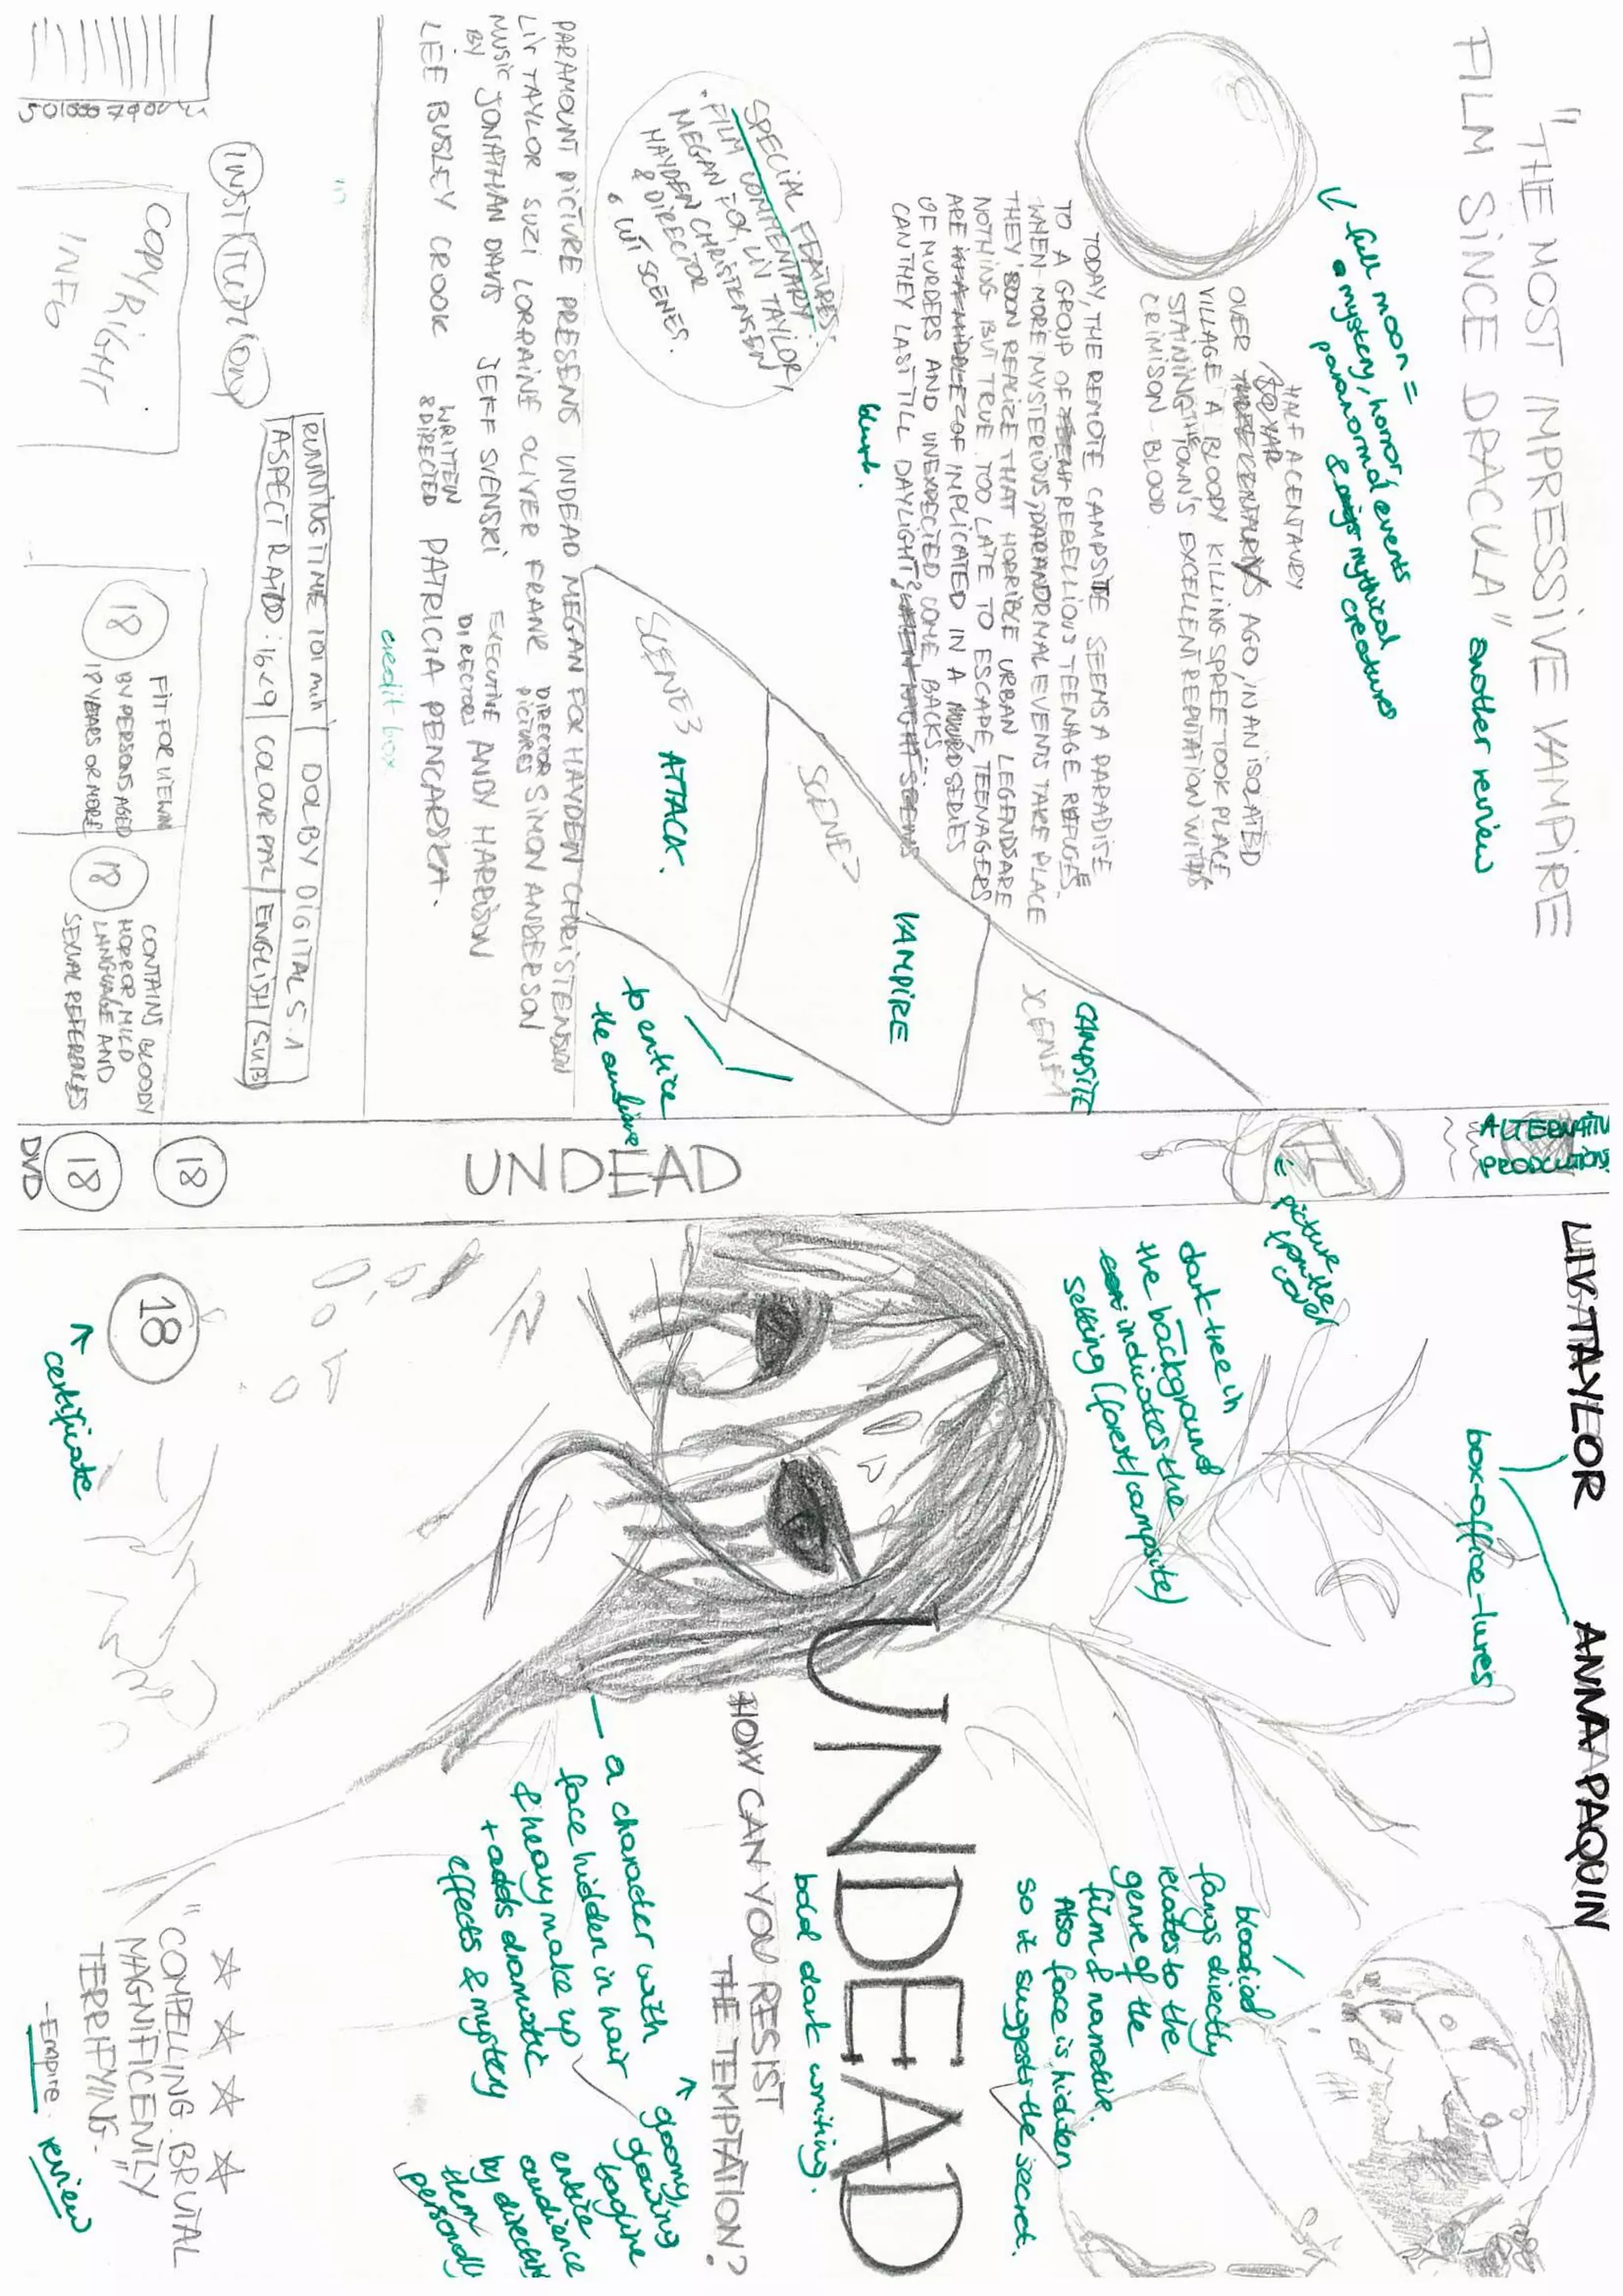 "THE MOST IMPRESSIVE VAMPIRE
FILM SINCE DRACULA"
another review
full moon =
mystery, horror
paranormal events
& mythical
creatures
HALF A CENTAURY
OVER
AGO, IN AN ISOLATED
VILLAGE A BLOODY KILLING SPREE TOOK PLACE
STAINING THE TOWN'S EXCELLENT REPUTATION WITH
CRIMISON-BLOOD.
TODAY, THE REMOTE CAMPSITE SEEMS A PARADISE
TO A GROUP OF REBELLIOUS TEENAGE REFUGES.
WHEN MORE MYSTERIOUS, PARANORMAL EVENTS TAKE PLACE
THEY SOON REALIZE THAT HORRIBLE URBAN LEGENDS ARE
NOTHING BUT TRUE. TOO LATE TO ESCAPE, TEENAGERS
ARE INPLICATED IN A SERIES
OF MURDERS AND UNEXPECTED COME BACKS...
CAN THEY LAST TILL DAYLIGHT?
blurb.
SPECIAL FEATURES:
• FILM COMMENTARY:
MEGAN FOX, LIV TAYLOR,
HAYDEN CHRISTENSEN
& DIRECTOR
• CUT SCENES.
SCENE 3
ATTACK.
SCENE 2
VAMPIRE
SCENE 1
CAMPSITE
to entice
the audience
PARAMOUNT PICTURE PRESENTS UNDEAD MEGAN FOX HAYDEN CHRISTENSEN
LIV TAYLOR SUZI LORRAINE OLIVER FRANK DIRECTOR PICTURES SIMON ANDERSON
MUSIC BY JONATHAN DAVIS JEFF SVENSKI EXECUTIVE DIRECTORS ANDY HARRISON
LEE BUSLEY CROOK WRITTEN & DIRECTED PATRICIA PENCARSKA.
credit box
INSTITUTIONS
RUNNING TIME 101 min DOLBY DIGITAL 5.1
ASPECT RATIO: 16x9 COLOUR PAL ENGLISH SUB
COPYRIGHT
INFO
18
FIT FOR VIEWIN
BY PERSONS AGED
18 YEARS OR MORE
18
CONTAINS BLOODY
HORROR, MILD
LANGUAGE AND
SEXUAL REFERENCES
ALTERNATIV
PRODUCTIONS
= picture
from the
cover
UNDEAD
18
18
DVD
LIV TAYLOR ANNA PAQUIN
box-office-lures
dark tree in
the background
indicates the
setting (forest/campsite)
bloodied
fangs directly
relates to the
genre of the
film & narrative.
Also face is hidden
so it suggests the secret.
UNDEAD
bold dark writing.
HOW CAN YOU RESIST
THE TEMPTATION?
gloomy,
daring
tagline
entice
audience
by directing
them
personally
a character with
face hidden in hair
& heavy make up
+ adds dramatic
effects & mystery
18
certificate
"COMPELLING. BRUTAL
MAGNIFICENTLY
TERRIFYING."
-Empire.
review